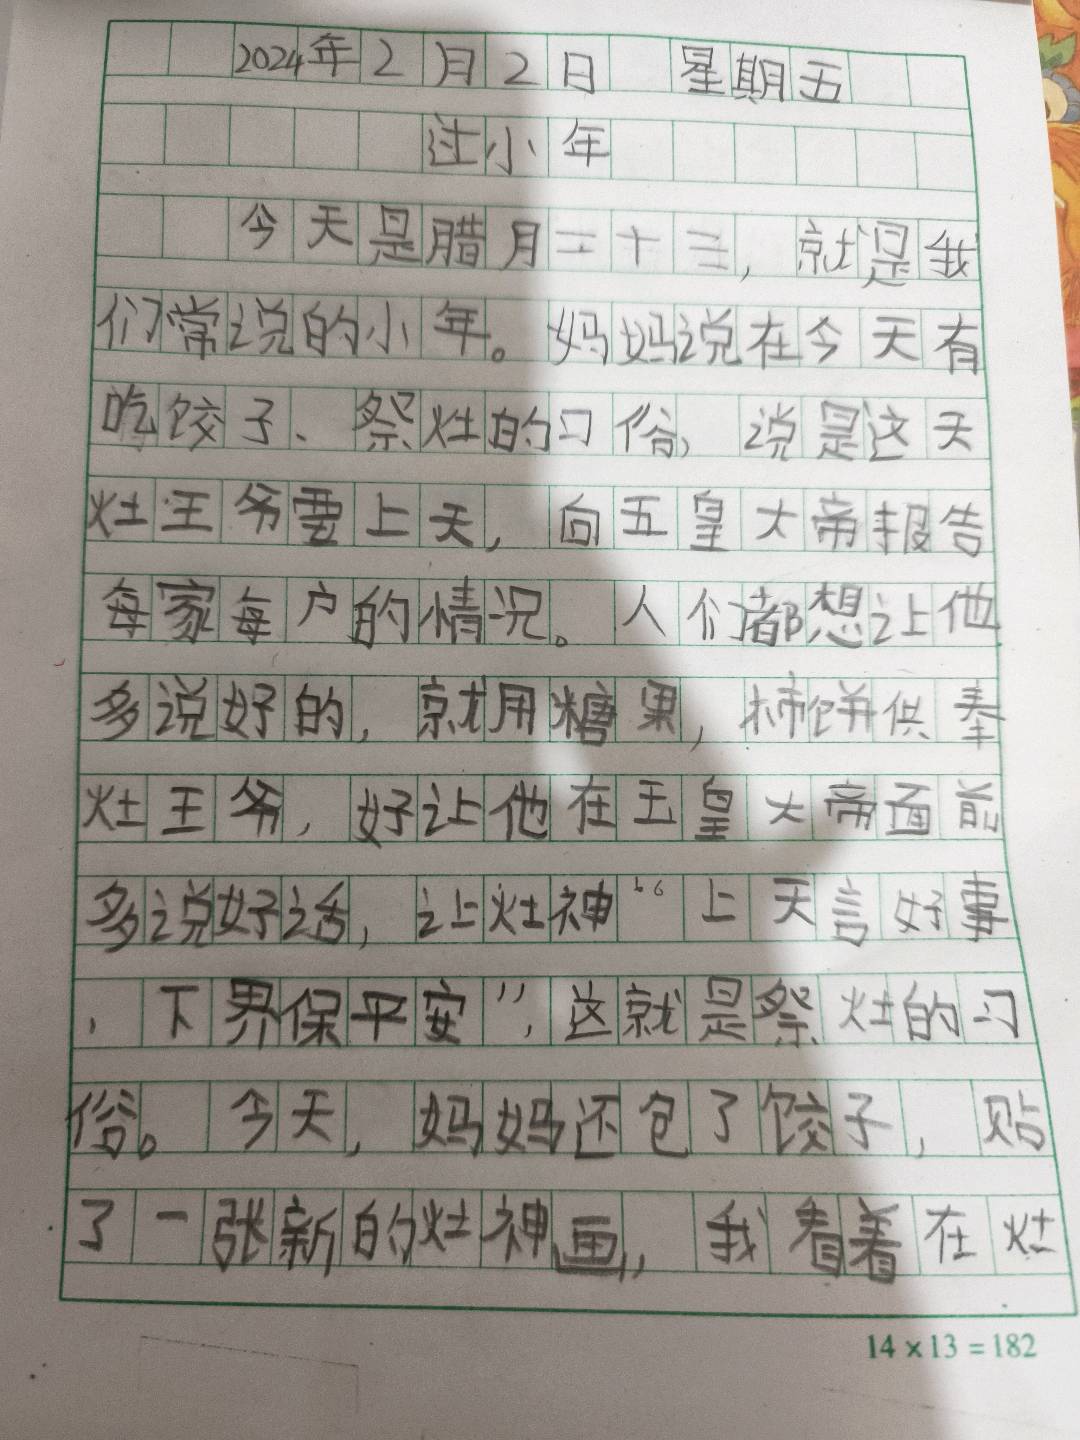 2024年2月2日 星期五
过小年
今天是腊月二十三，就是我
们常说的小年。妈妈说在今天有
吃饺子、祭灶的习俗，说是这天
灶王爷要上天，向五皇大帝报告
每家每户的情况。人们都想让他
多说好的，就用糖果，柿饼供奉
灶王爷，好让他在王皇大帝面前
多说好话，让灶神“上天言好事
，下界保平安”，这就是祭灶的习
俗。今天，妈妈还包了饺子，贴
了一张新的灶神画，我看着在灶
14×13=182